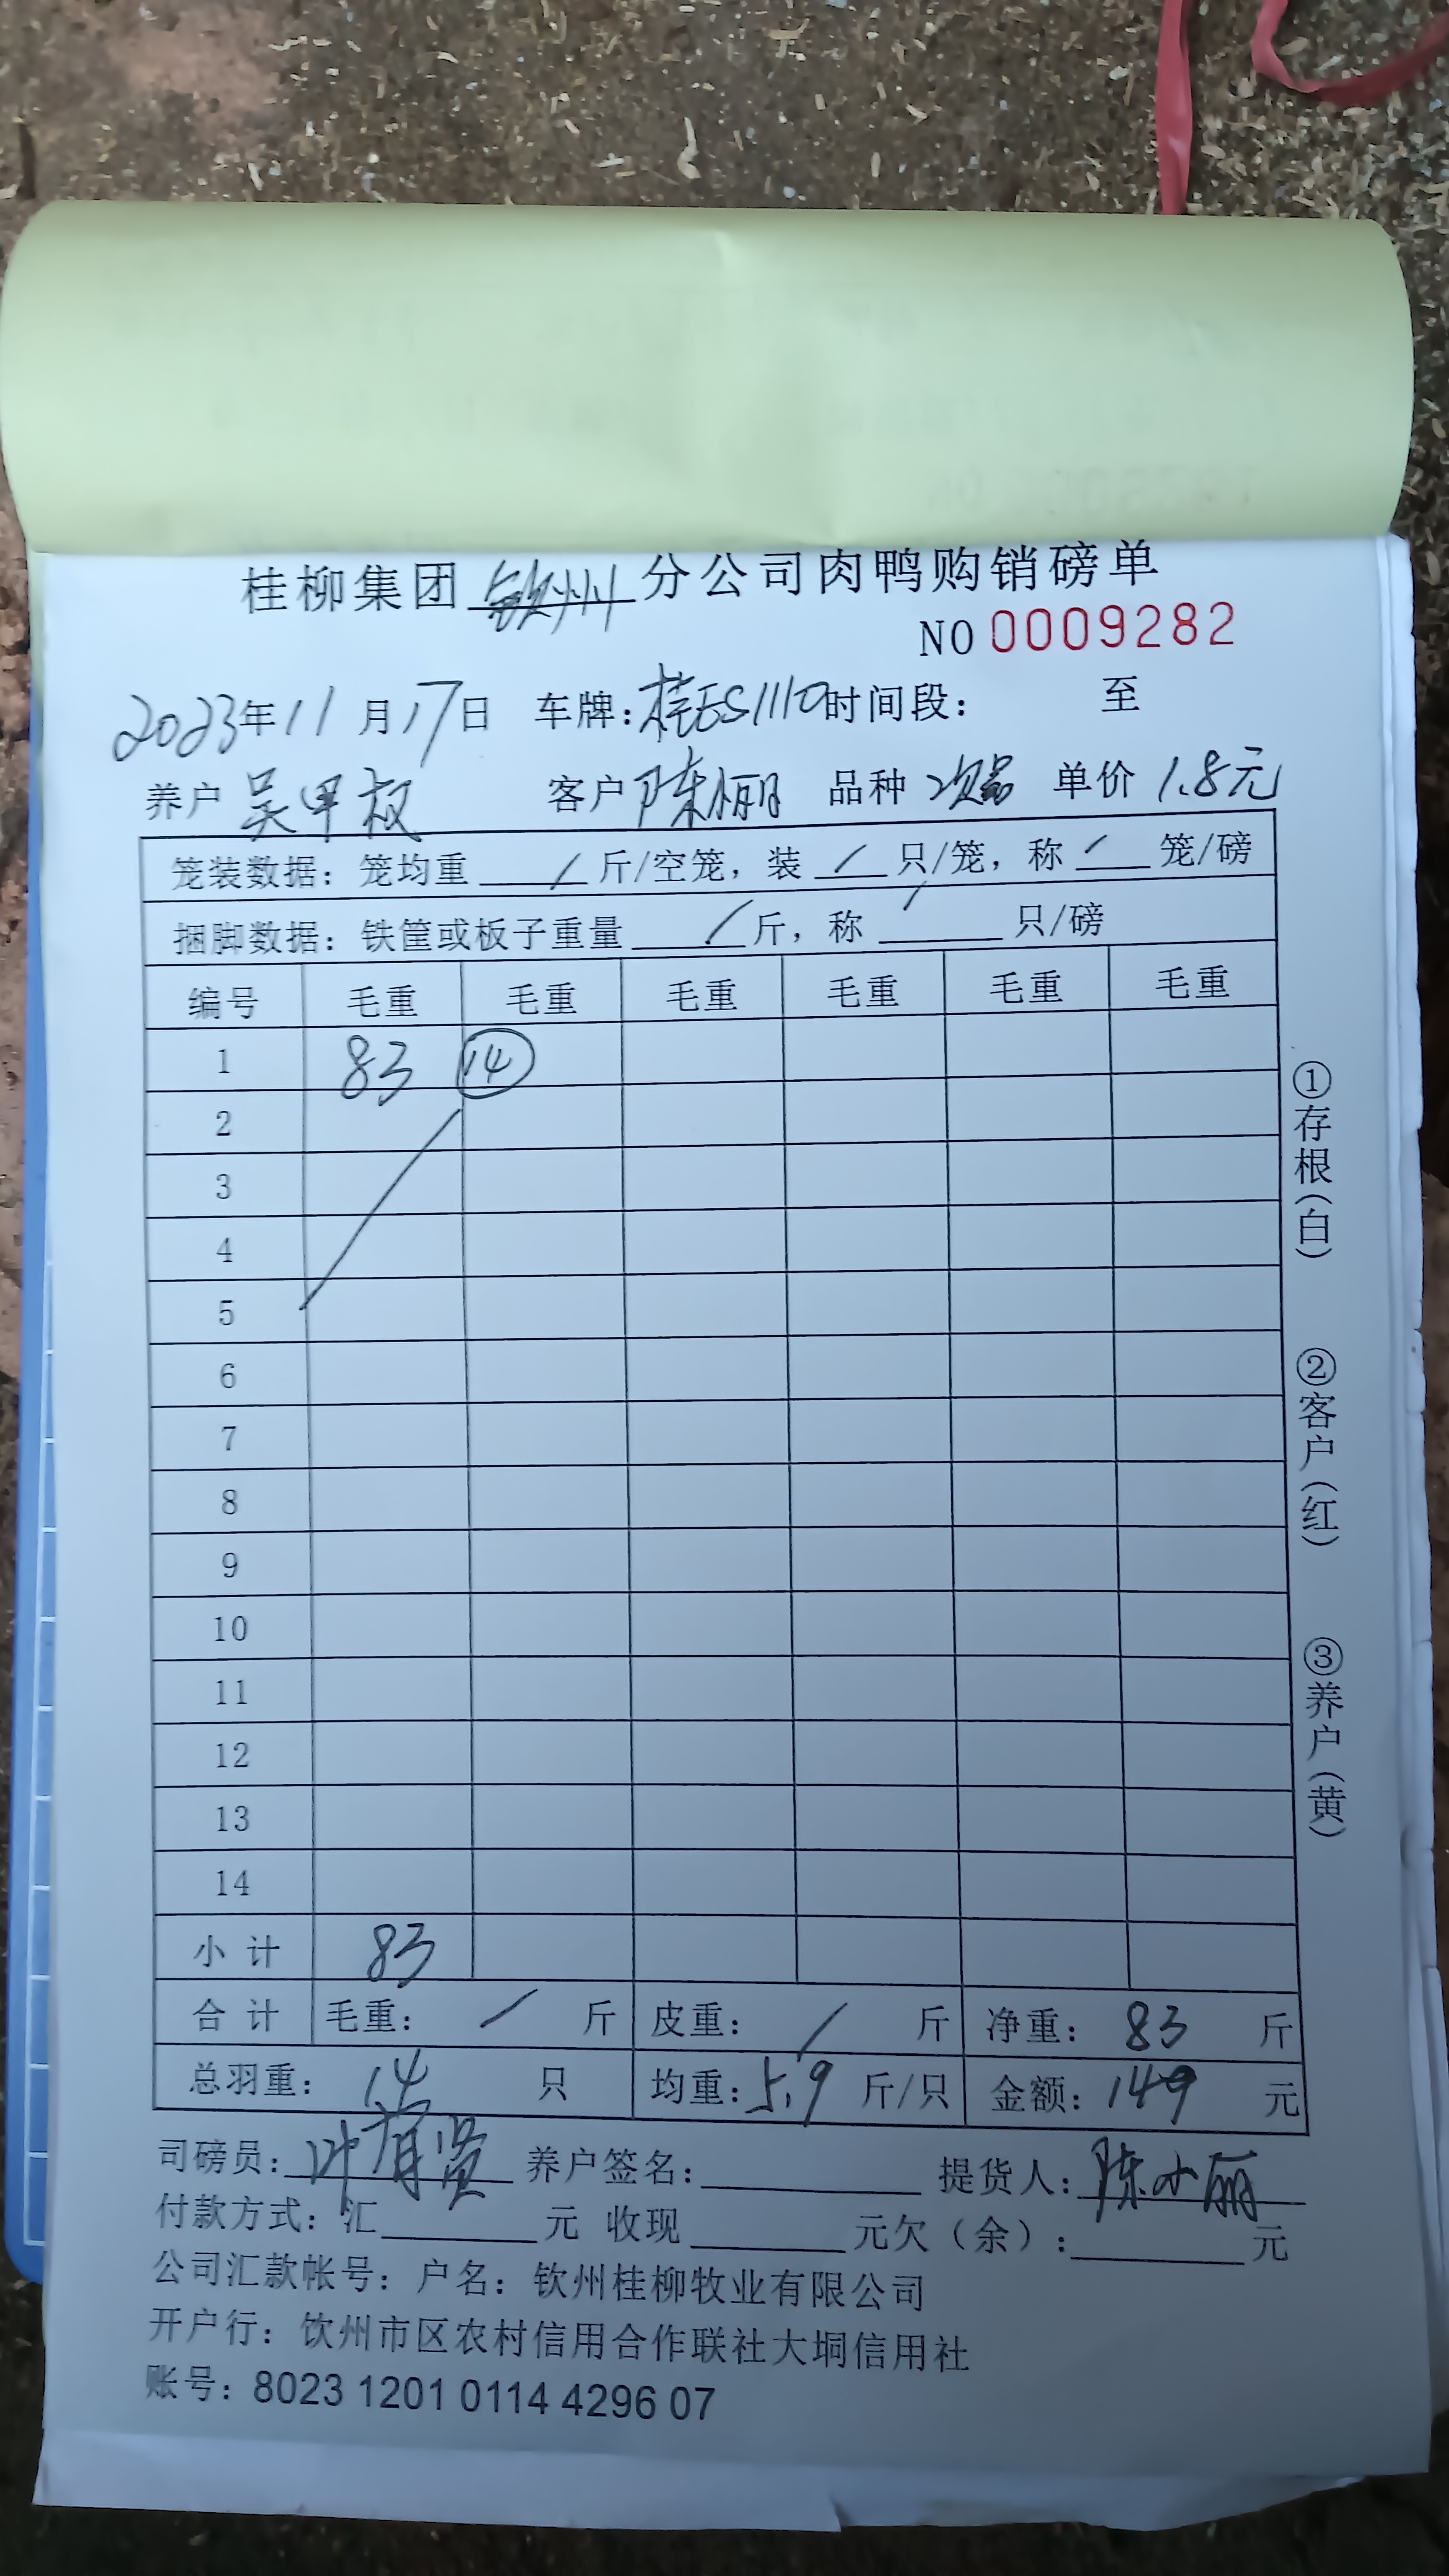 桂柳集团钦州分公司肉鸭购销磅单
NO 0009282
2023年11月17日 车牌:桂ES1110时间段: 至
养户 吴甲权 客户 陈丽 品种 次品 单价 1.8元
笼装数据:笼均重 / 斤/空笼,装 / 只/笼,称 / 笼/磅
捆脚数据:铁筐或板子重量 / 斤,称 / 只/磅
编号 毛重 毛重 毛重 毛重 毛重 毛重
1 83 14
2
3
4
5
6
7
8
9
10
11
12
13
14
小计 83
合计 毛重: / 斤 皮重: / 斤 净重: 83 斤
总羽重: 14 只 均重:5.9 斤/只 金额:149 元
司磅员:叶有贤 养户签名: 提货人:陈小丽
付款方式:汇 元 收现 元欠(余): 元
公司汇款帐号:户名:钦州桂柳牧业有限公司
开户行:饮州市区农村信用合作联社大垌信用社
账号:8023 1201 0114 4296 07
①存根(白)
②客户(红)
③养户(黄)